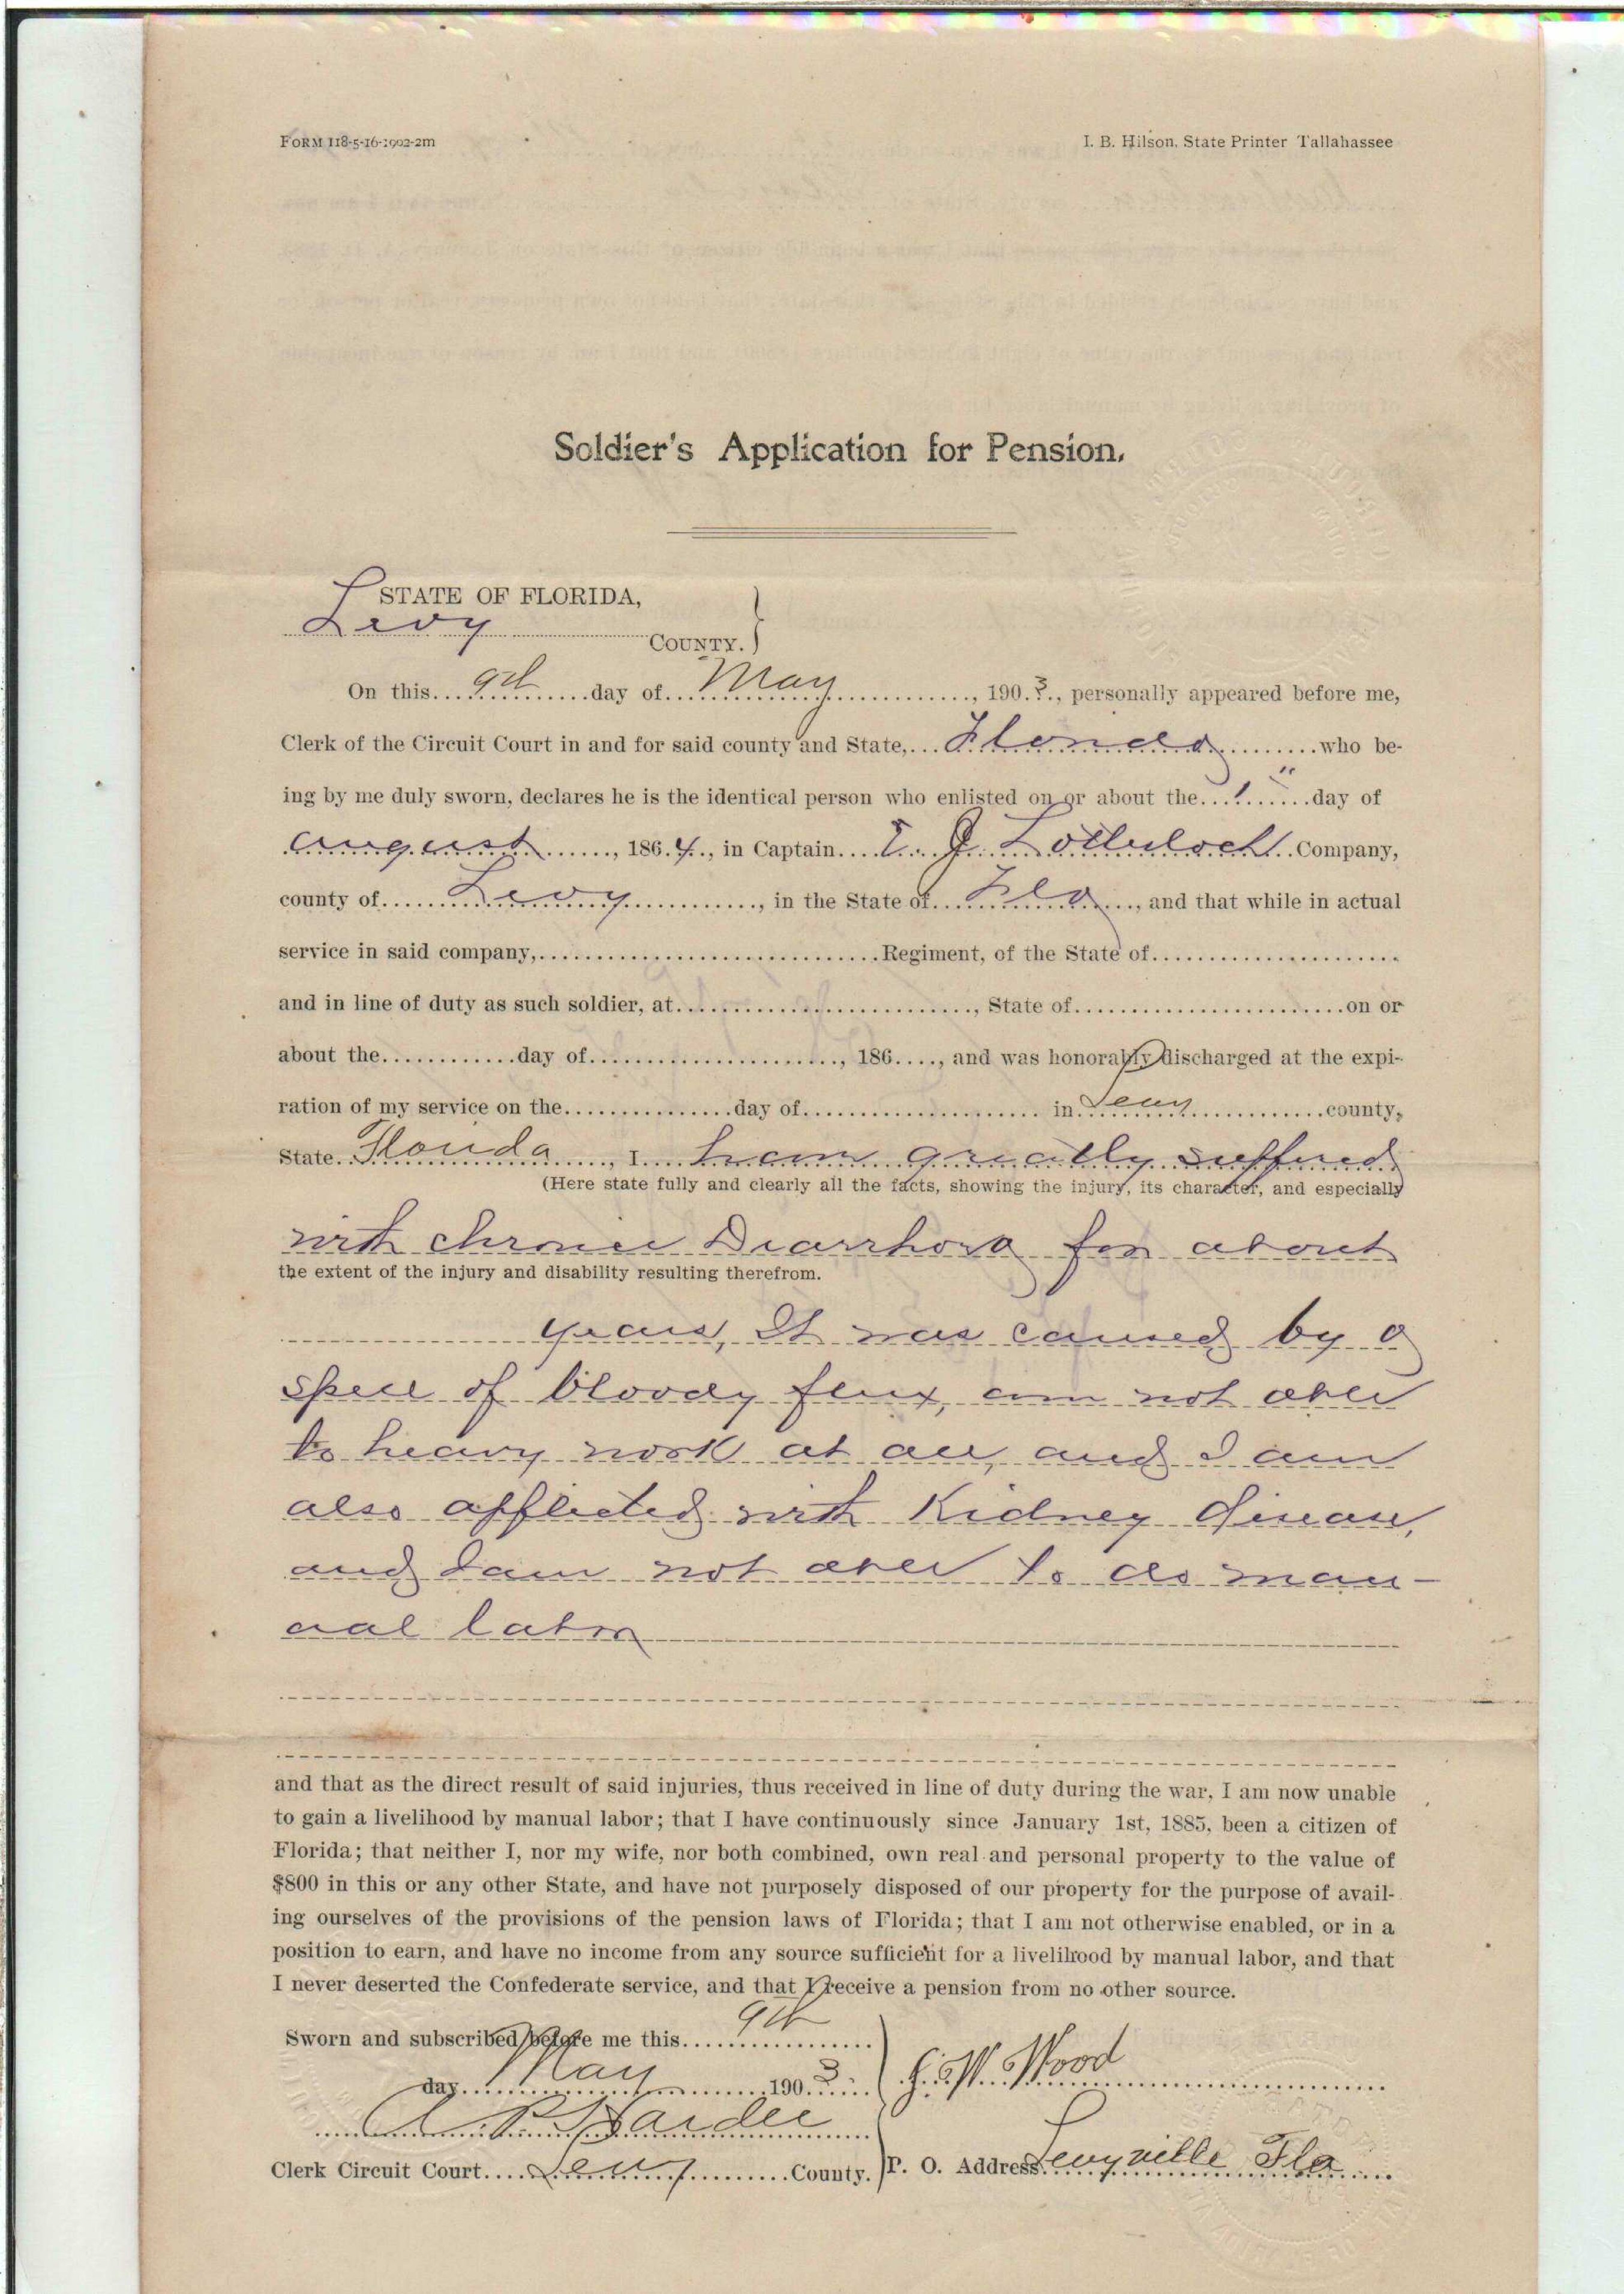 FORM 118-5-16-1902-2m
I. B. Hilson, State Printer Tallahassee
Soldier's Application for Pension.
STATE OF FLORIDA,
Levy COUNTY.
On this 9th day of May, 1903, personally appeared before me,
Clerk of the Circuit Court in and for said county and State, Florida who be-
ing by me duly sworn, declares he is the identical person who enlisted on or about the 1" day of
August, 1864, in Captain E. J. Company,
county of Levy, in the State of Fla, and that while in actual
service in said company, Regiment, of the State of
and in line of duty as such soldier, at, State of on or
about the day of, 186, and was honorably discharged at the expi-
ration of my service on the day of in Levy county,
State Florida, I have greatly suffered
(Here state fully and clearly all the facts, showing the injury, its character, and especially
with chronic Diarrhoea for about
the extent of the injury and disability resulting therefrom.
years, It was caused by a
spell of bloody flux, am not able
to heavy work at all, and I am
also afflicted with Kidney disease,
and I am not able to do man-
ual labor
and that as the direct result of said injuries, thus received in line of duty during the war, I am now unable
to gain a livelihood by manual labor; that I have continuously since January 1st, 1885, been a citizen of
Florida; that neither I, nor my wife, nor both combined, own real and personal property to the value of
$800 in this or any other State, and have not purposely disposed of our property for the purpose of avail-
ing ourselves of the provisions of the pension laws of Florida; that I am not otherwise enabled, or in a
position to earn, and have no income from any source sufficient for a livelihood by manual labor, and that
I never deserted the Confederate service, and that I receive a pension from no other source.
Sworn and subscribed before me this 9th
day May 1903
W. Wood
Hardee
Clerk Circuit Court Levy County.
P. O. Address Levyville Fla